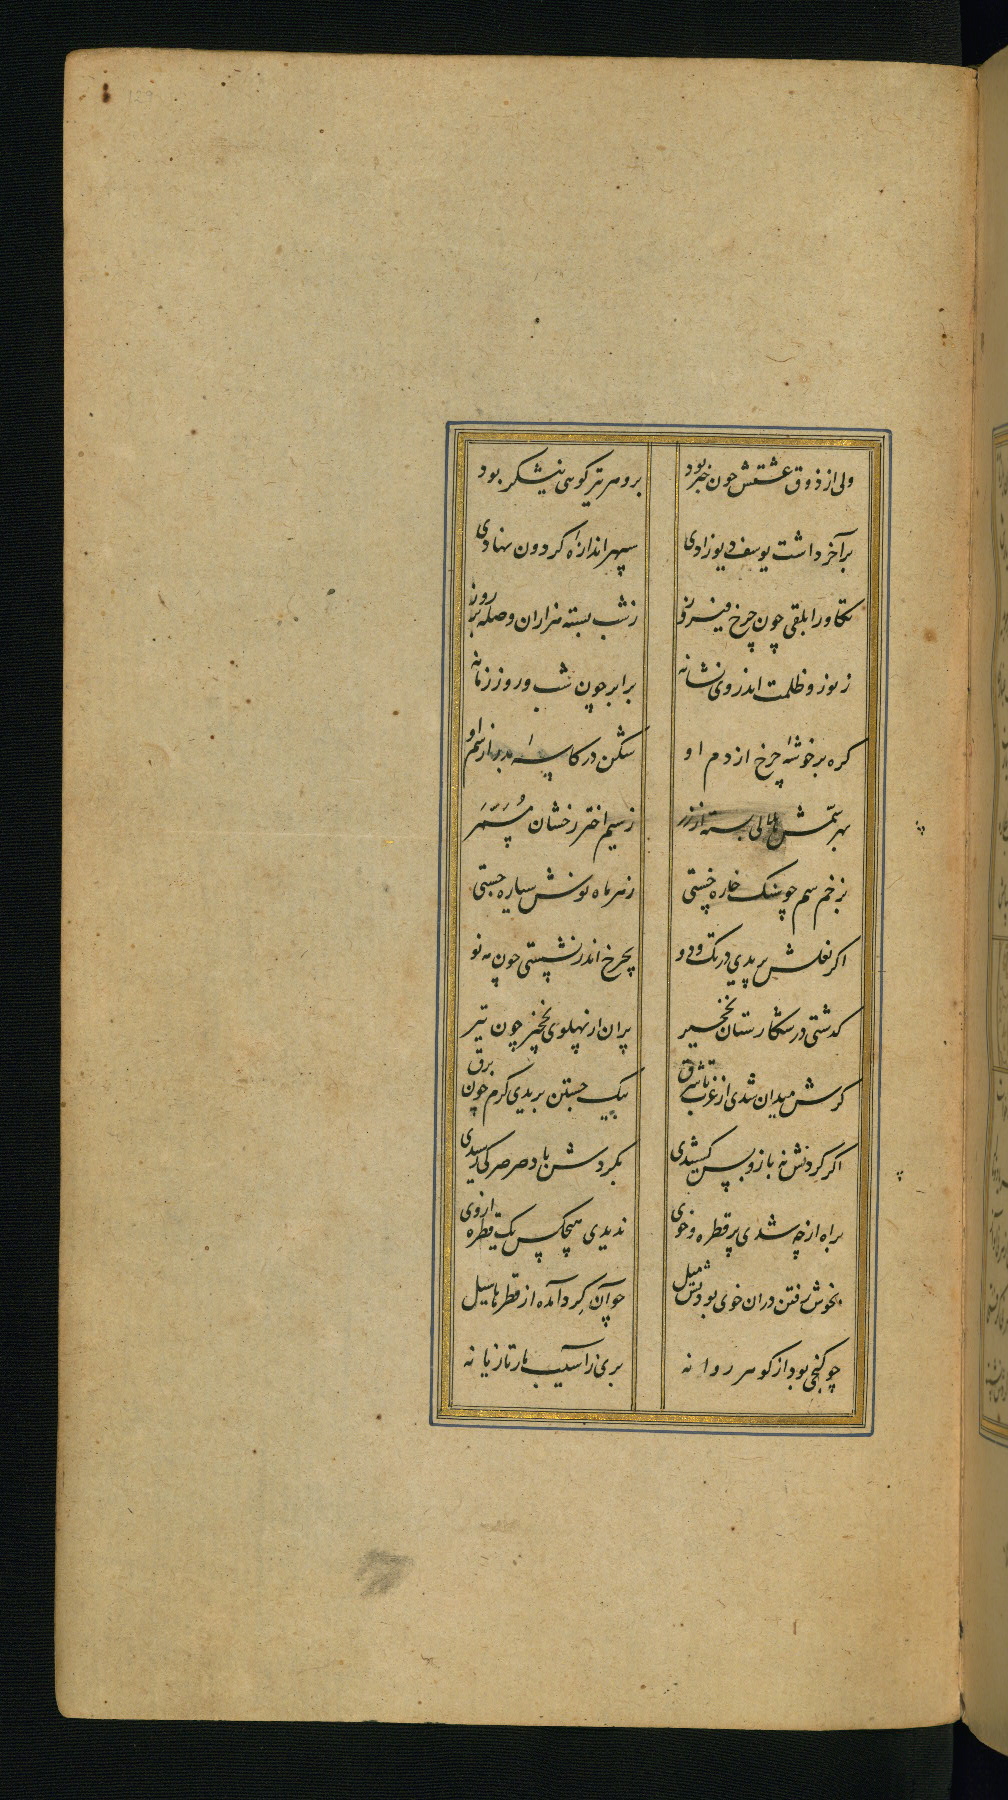 ولی از ذوق عشقش چون خبر بود برو هر تیر کوسی نیشکر بود
برآخر داشت یوسف دیوزادی سپهر اندازه کردون نهادی
تکاور ابلقی چون چرخ فیروز زشب بسته هزاران وصله بر روز
ز نور و ظلمت اندر وی نشانه برابر چون شب و روز زمانه
کره بر خوشهٔ چرخ از دم او شکن در کاسهٔ بدر از سم او
بهر سمش هلالی بسته از زر زسیم اختر رخشان مُسَمَّر
بزخم سم چو سنک خاره خستی زهر ماه نوش سیاره جستی
اکر نعلش پریدی در تک و دو بچرخ اندر نشستی چون مه نو
کذشتی در شکارستان نخجیر پران از پهلوی نخجیر چون تیر
کرش میدان شدی از غرب تا شرق بیک جستن بریدی کرم چون برق
اگر کردش نه باز و پس کشیدی بکردش باد صرصر کی رسیدی
براه ار چه شدی پر قطره وخوی ندیدی هیچکس یک قطره از وی
بخوش رفتن دران خوی بودیش میل چو آن کرد آمده از قطرها سیل
چو کنجی بود از کوهر روانه بری ز آسیب مار تازیانه